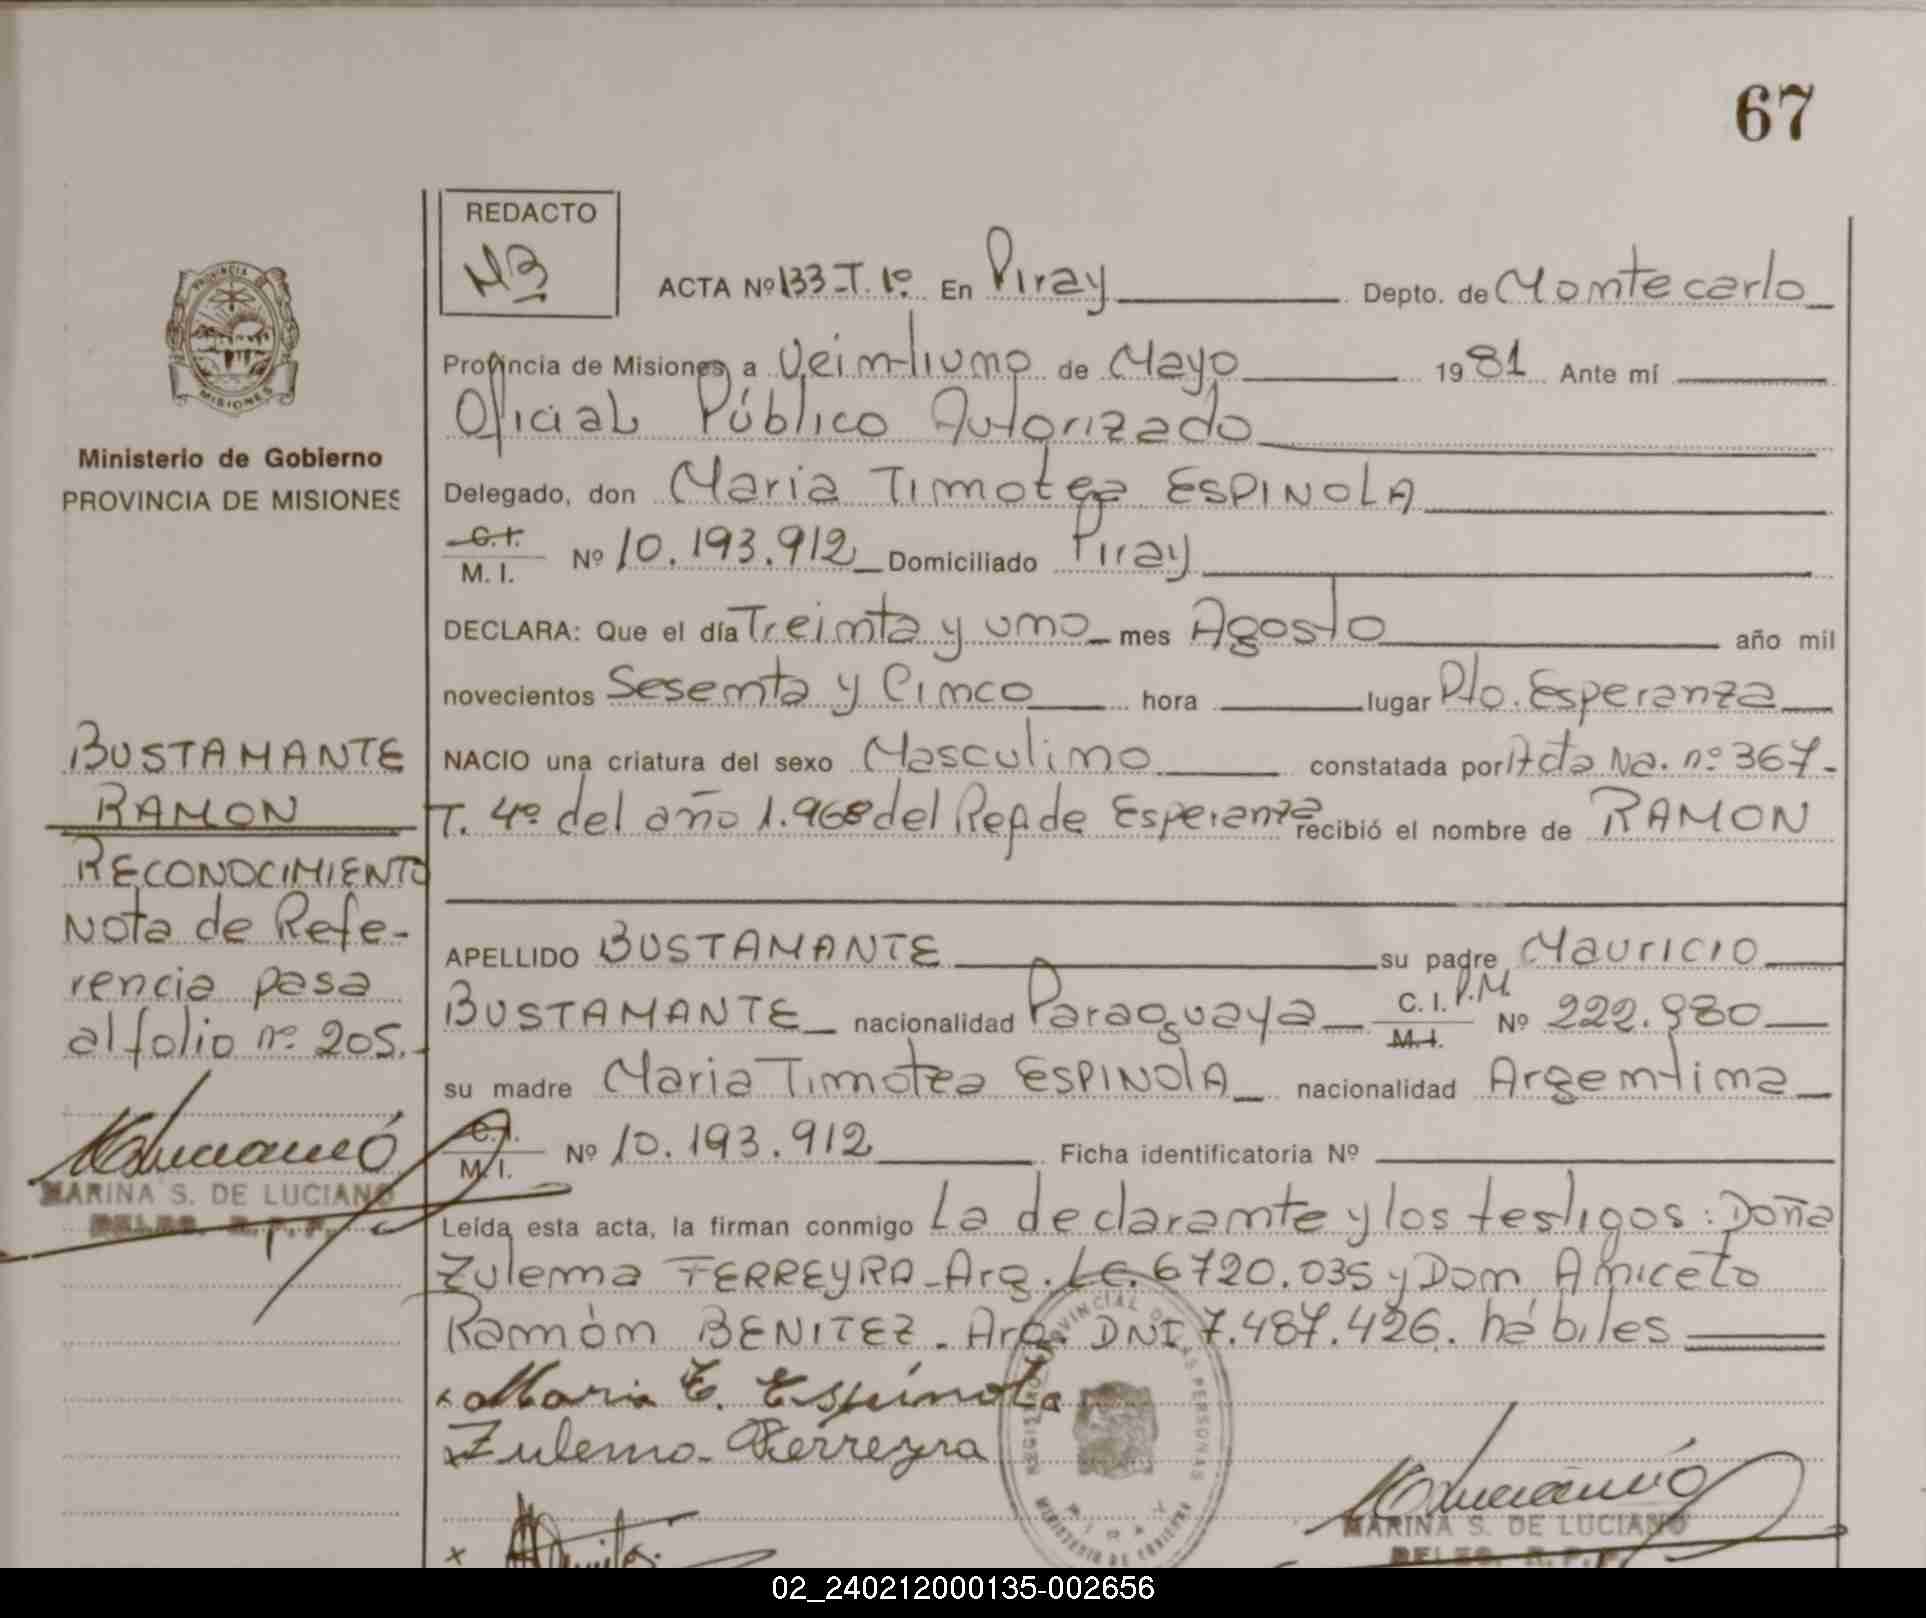 67
REDACTO
MB
ACTA Nº 133-T. 1º. En Piray Depto. de Montecarlo
Provincia de Misiones, a Veintiuno de Mayo 1981 Ante mí
Oficial Público Autorizado
Delegado, don Maria Timotea ESPINOLA
C.I.
M. I. Nº 10.193.912 Domiciliado Piray
DECLARA: Que el día Treinta y uno mes Agosto año mil
novecientos Sesenta y Cinco hora lugar Pto. Esperanza
NACIO una criatura del sexo Masculino constatada por Acta Na. nº 367-
T. 4º del año 1.968 del Rep de Esperanza recibió el nombre de RAMON
APELLIDO BUSTAMANTE su padre Mauricio
BUSTAMANTE nacionalidad Paraguaya C. I. P.M. M.I. Nº 222.980
su madre Maria Timotea ESPINOLA nacionalidad Argentina
C.I.
M. I. Nº 10.193.912 Ficha identificatoria Nº
Leída esta acta, la firman conmigo La declarante y los testigos: Doña
Zulema FERREYRA-Arg. LC. 6720.035 y Don Aniceto
Ramón BENITEZ - Arg. DNI 7.487.426. hábiles
x Maria T. Espínola
x Zulema Ferreyra
x
REGISTRO PROVINCIAL DE LAS PERSONAS
PIRAY
MINISTERIO DE GOBIERNO
MARINA S. DE LUCIANO
DELEG. R.P.P.
PROVINCIA
MISIONES
Ministerio de Gobierno
PROVINCIA DE MISIONES
BUSTAMANTE
RAMON
RECONOCIMIENTO
Nota de Refe-
rencia pasa
al folio nº 205.-
MARINA S. DE LUCIANO
DELEG. R.P.P.
02_240212000135-002656